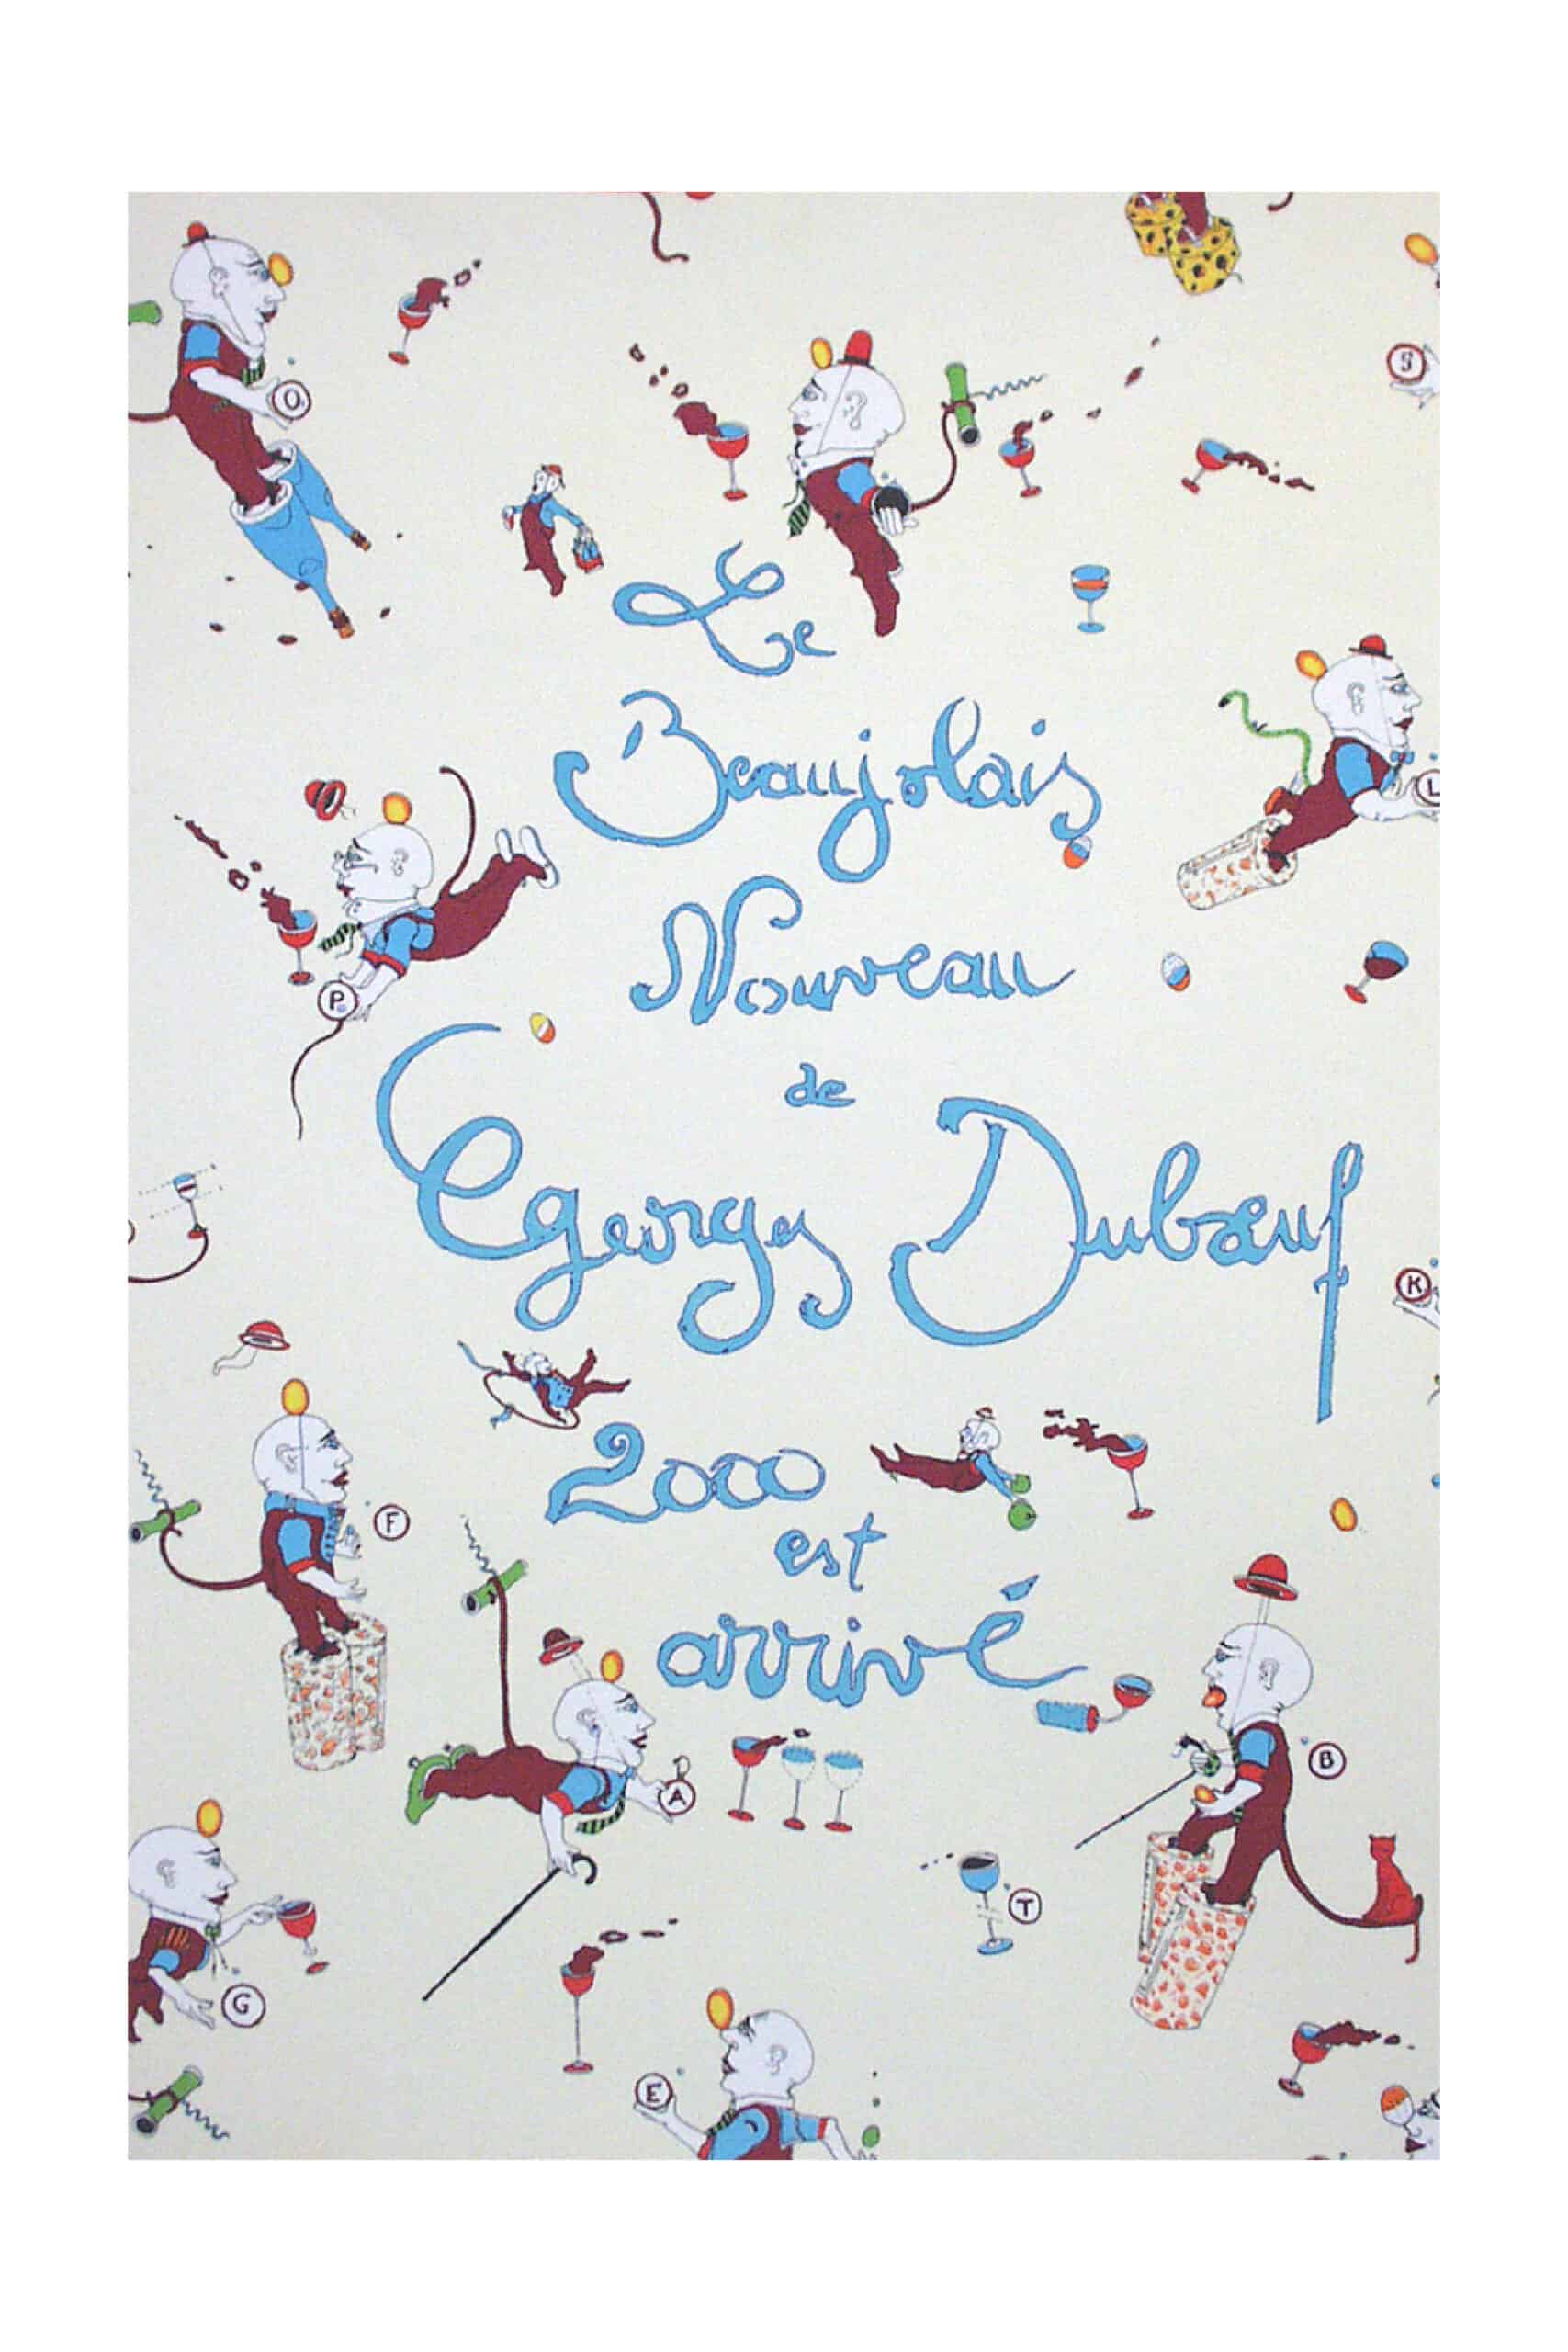 O
S
Le
Beaujolais
L
Nouveau
P
de
Georges Dubœuf
K
2000
F
est
arrivé
B
A
T
G
E